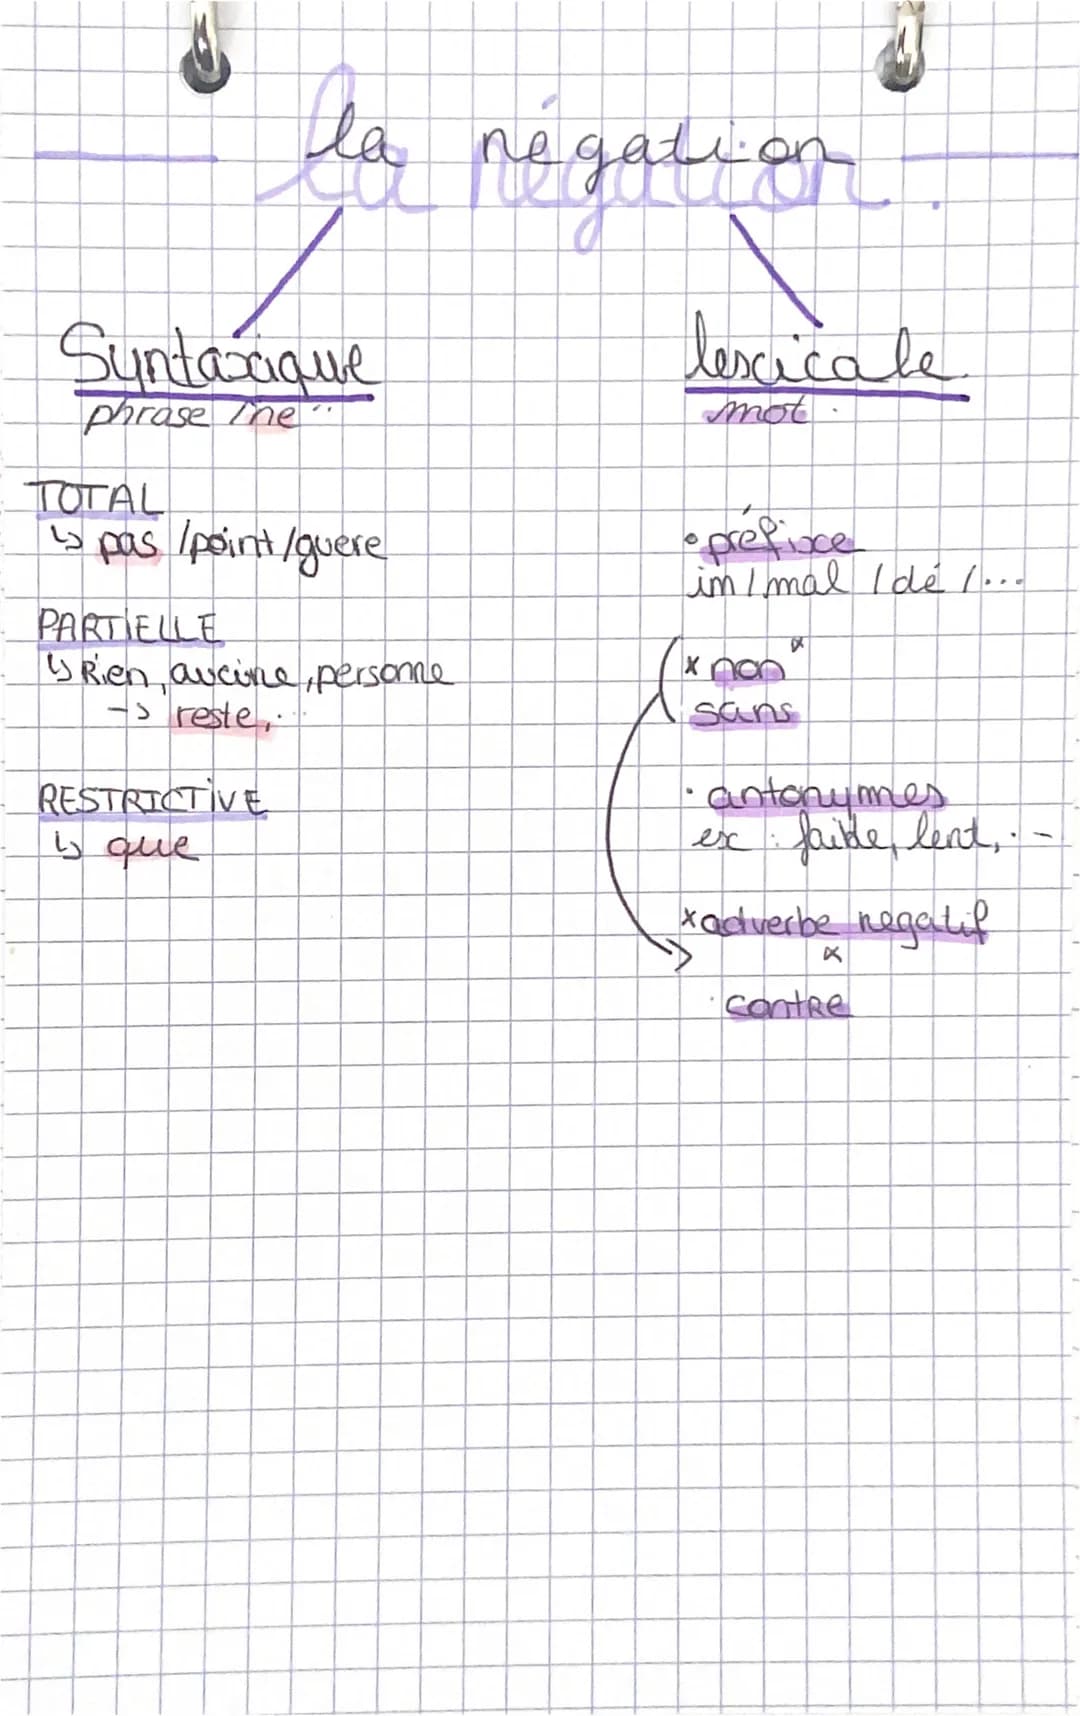 la négation
la négation.
Syntaxique
phrase /ne ..
TOTAL
↳ pas /point/guere
PARTIELLE
↳ Rien, aucune, personne
-> reste, ...
RESTRICTIVE
↳ que
lexicale
mot.
• préfixe
im / mal / dé / ...
x non
sans
• antonymes
ex : faible, lent, ...
x adverbe négatif
• contre